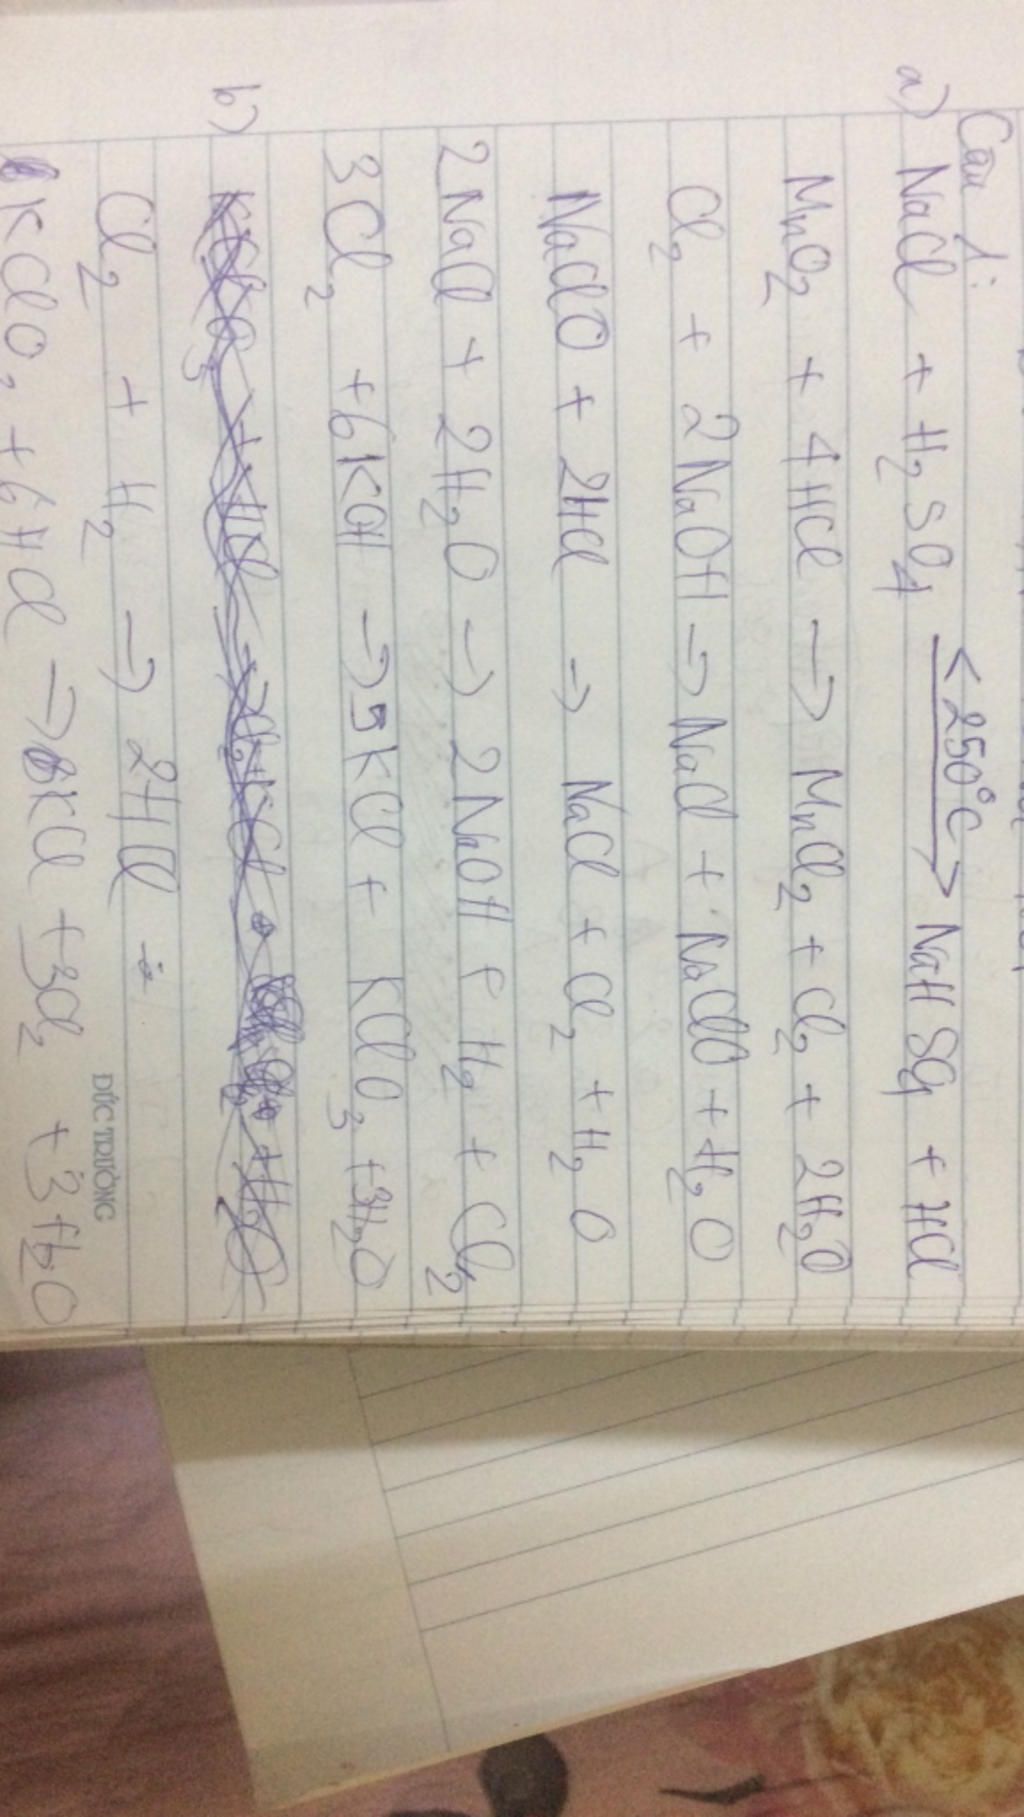 Câu 1:
a) NaCl + H₂SO₄ <250°C→ NaHSO₄ + HCl
MnO₂ + 4HCl → MnCl₂ + Cl₂ + 2H₂O
Cl₂ + 2NaOH → NaCl + NaClO + H₂O
NaClO + 2HCl → NaCl + Cl₂ + H₂O
2NaCl + 2H₂O → 2NaOH + H₂ + Cl₂
3Cl₂ + 6KOH → 5KCl + KClO₃ + 3H₂O
b)
Cl₂ + H₂ → 2HCl
KClO₃ + 6HCl → KCl + 3Cl₂ + 3H₂O
ĐỨC TRƯỜNG